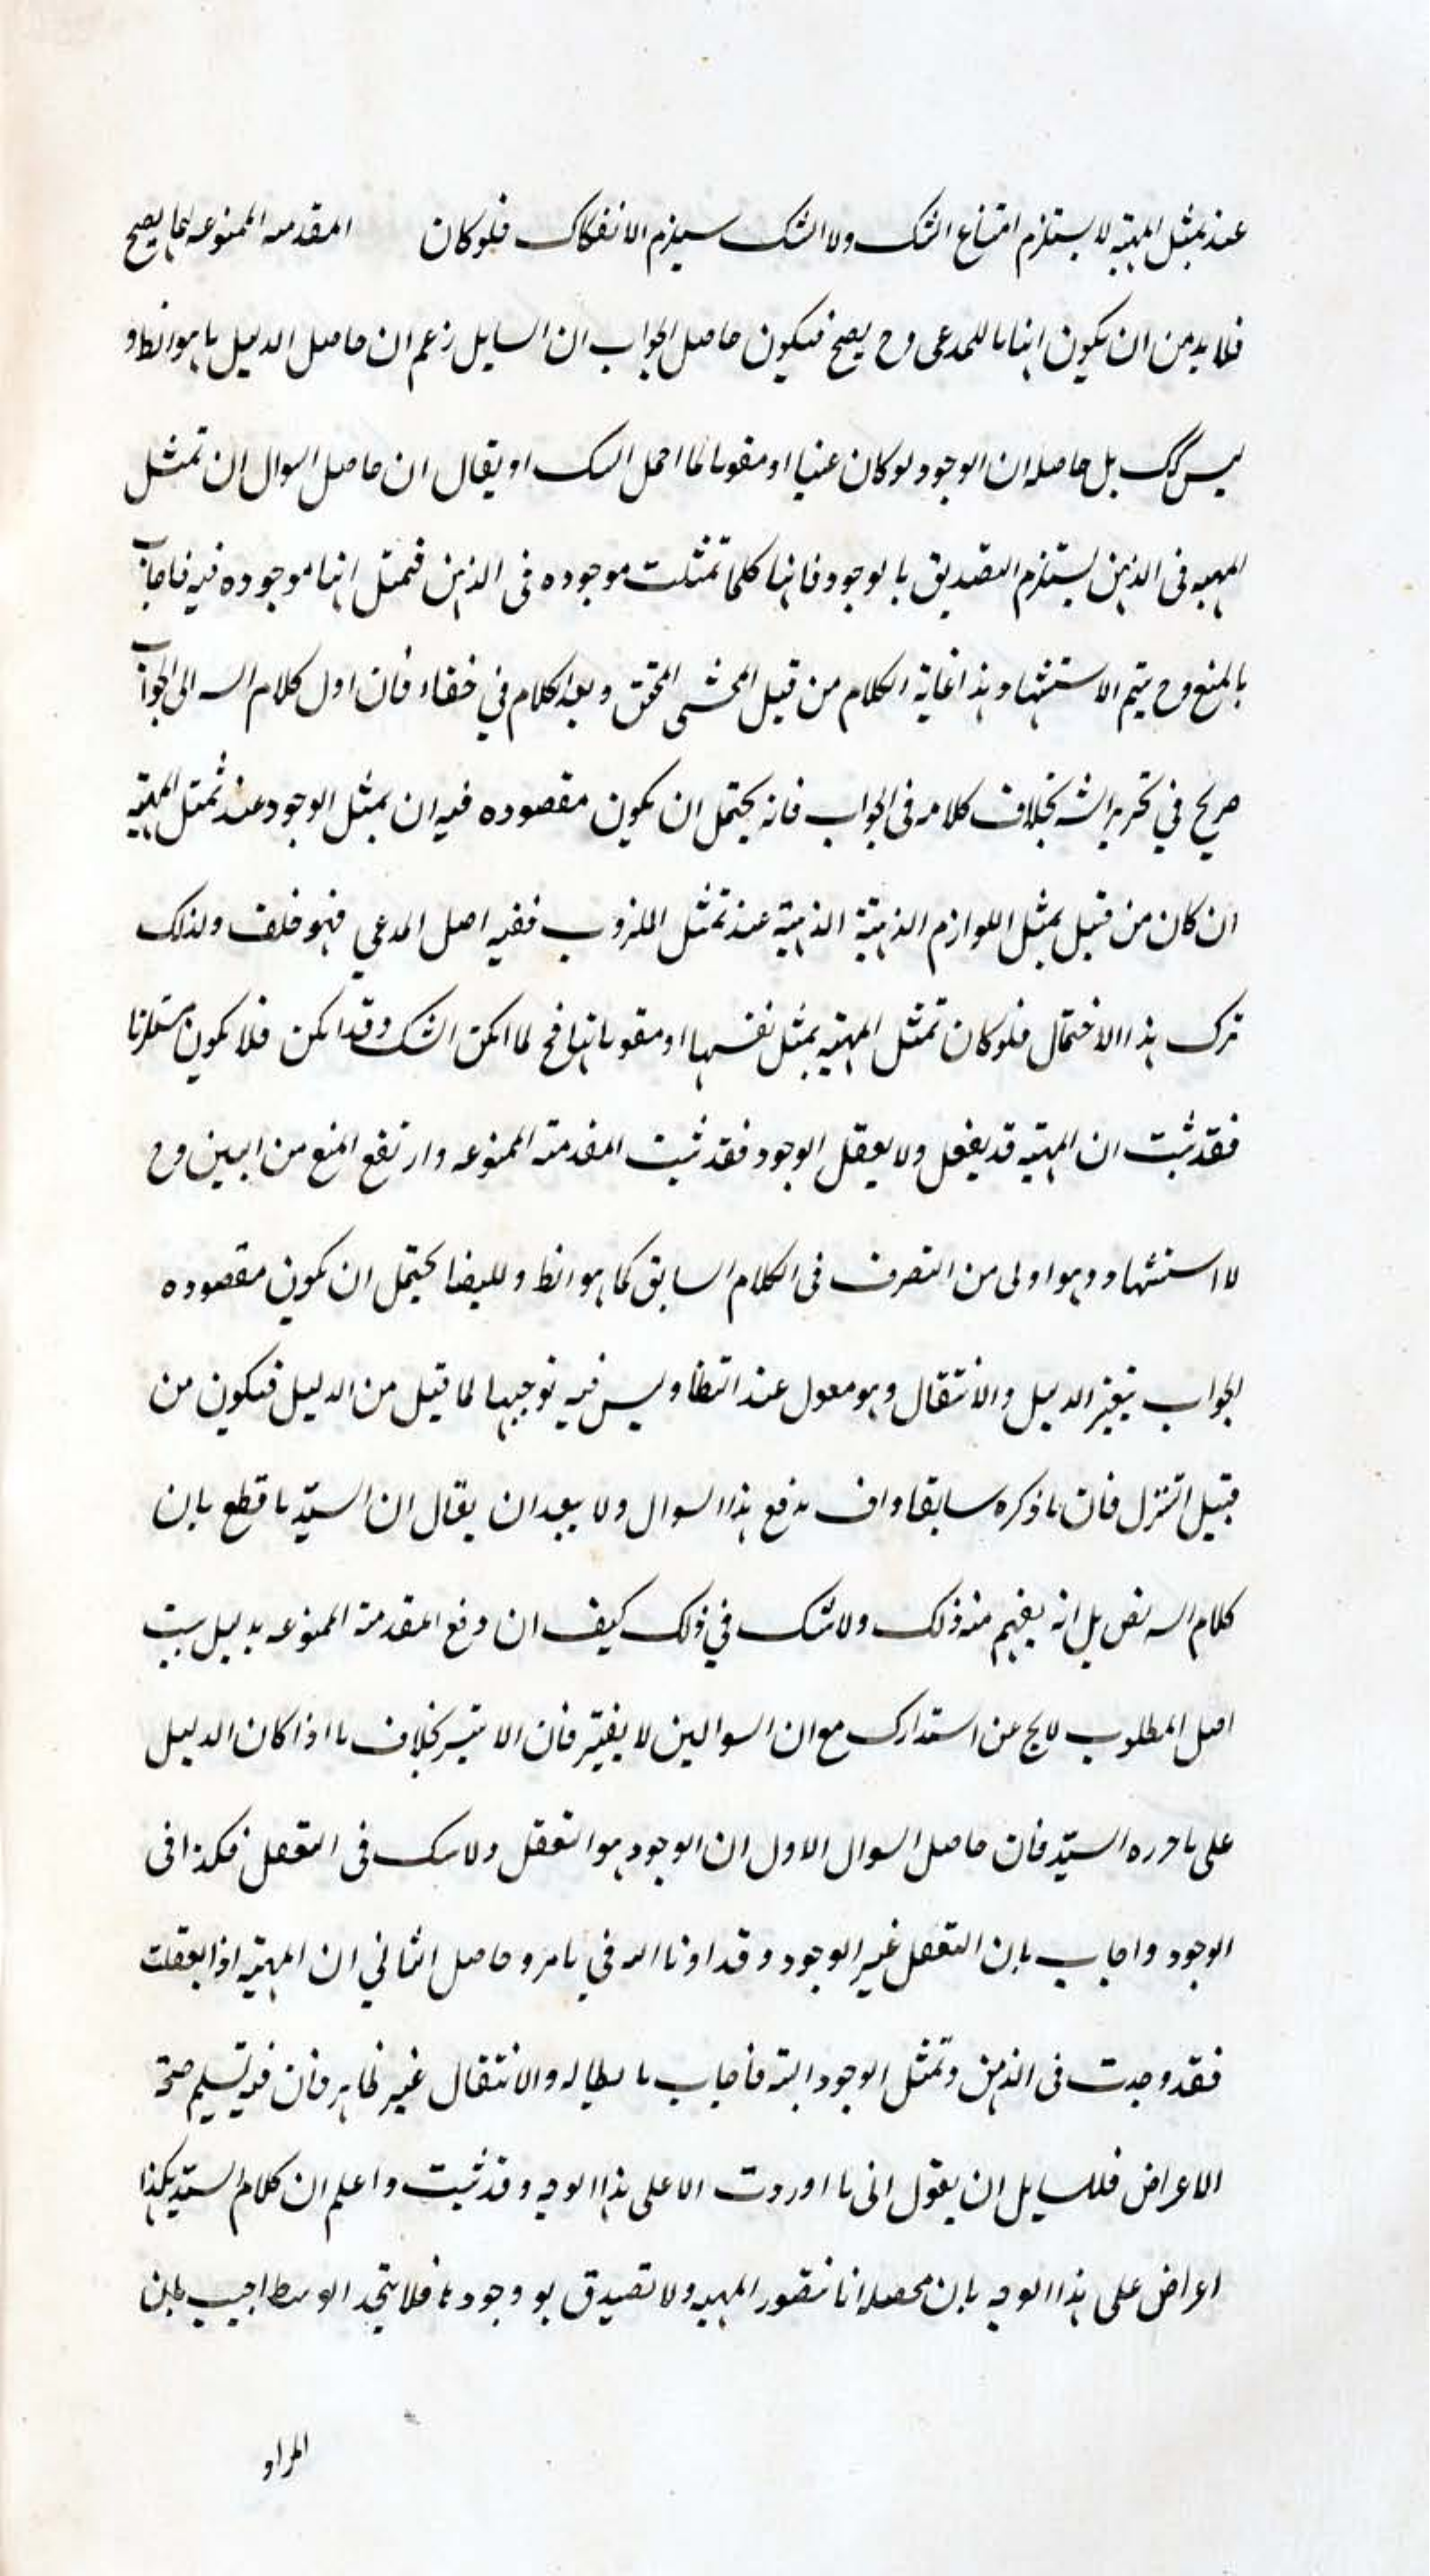 عند تمثل المهية لا يستلزم امتناع الشك ولا الشك يستلزم الانفكاك فلو كان المقدمه الممنوعه لما يصح
فلا بد من ان يكون اثباتا للمدعى وح يصح فيكون حاصل الجواب ان السايل زعم ان حاصل الدليل ما هو الظ و
ليس كك بل حاصله ان الوجود لو كان عينا او مقوما لما احمل الشك او يقال ان حاصل السوال ان تمثل
المهيه فى الذهن يستلزم التصديق بالوجود فانها كلما تمثلت موجوده فى الذهن فتمثل انها موجوده فيه فاجاب
بالمنع وح يتم الاستشهاد هذا غاية الكلام من قبل المحشى المحقق وبعد الكلام في خفاء فان اول كلام السه الى الجواب
صريح في تحرير الش بخلاف كلامه فى الجواب فانه يحتمل ان يكون مقصوده فيه ان تمثل الوجود عند تمثل المهية
ان كان من قبيل تمثل اللوازم الذهنية الذهنية عند تمثل الملزوب ففيه اصل المدعي فهو خلف ولذلك
ترك هذا الاحتمال فلو كان تمثل المهيه تمثل نفسها او مقوماتها فح لما امكن الشك وقد امكن فلا يكون مستلزما
فقد ثبت ان المهيه قد يعقل ولا يعقل الوجود فقد ثبت المقدمته الممنوعه وارتفع المنع من البين وح
لا استشهاد وهو اولى من التصرف فى الكلام السابق كما هو الظ و للبضا يحتمل ان يكون مقصوده
الجواب بتغيز الدليل والانتقال وهو معول عند النظا وليس فيه توجيها لما قيل من الدليل فيكون من
قبيل التنزل فان ما ذكره سابقا واف بدفع هذا السوال ولا يبعد ان يقال ان السيد ما قطع بان
كلام السه نص بل انه يفهم منه ذلك ولا شك في ذلك كيف ان دفع المقدمة الممنوعه بدليل يثبت
اصل المطلوب لا يخ عن استدارك مع ان السوالين لا يغير فان الا بتير بخلاف ما اذا كان الدليل
على ما حرره السيد فان حاصل السوال الاول ان الوجود هو التعقل ولا شك فى التعقل فكذا فى
الوجود واجاب بان التعقل غير الوجود وقد اونا اله في ما مر وحاصل الثاني ان المهيه اذا تعقلت
فقد وجدت فى الذهن وتمثل الوجود البته فأجاب بابطاله والانتقال غير ظاهر فان فيه تسليم صحة
الاعراض فللسايل ان يقول انى ما اوردت الا على هذا الوجه وقد ثبت واعلم ان كلام السيد هكذا
اعراض على هذا الوجه بان محصله انا نتصور المهيه ولا تصديق بو وجودها فلا يتحد الوسط اجيب بان
المراد